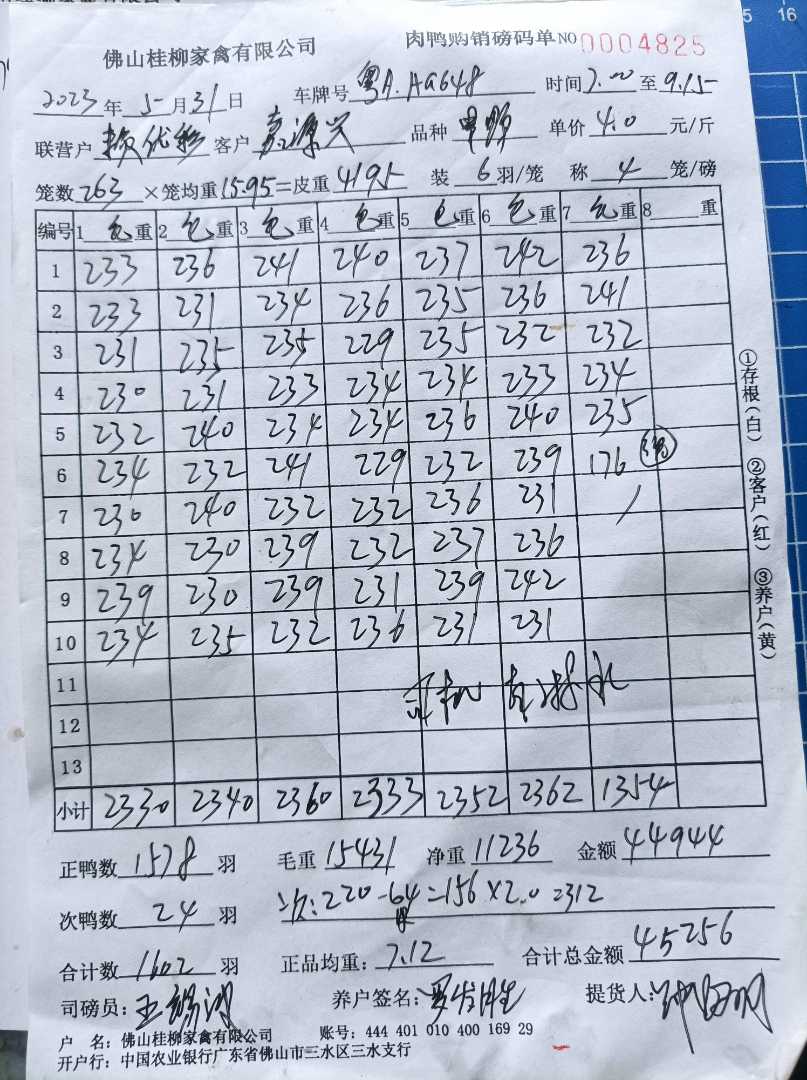 佛山桂柳家禽有限公司 肉鸭购销磅码单 NO 0004825
2023年 5月 31日 车牌号 粤A.HG648 时间 7.00 至 9.15
联营户 客户 嘉源兴 品种 单价 4.0 元/斤
笼数 263 ×笼均重 15.95 =皮重 4195 装 6 羽/笼 称 4 笼/磅
编号 1 毛重 2 毛重 3 毛重 4 毛重 5 毛重 6 毛重 7 毛重 8 重
1 233 236 241 240 237 242 236
2 233 231 234 236 235 236 241
3 231 235 235 229 235 232 232
4 230 231 233 234 234 233 234
5 232 240 234 234 236 240 235
6 234 232 241 229 232 239 176
7 230 240 232 232 236 231 /
8 234 230 239 232 237 236
9 239 230 239 231 239 242
10 234 235 232 236 231 231
11
12
13
小计 2330 2340 2360 2333 2352 2362 1354
①存根(白) ②客户(红) ③养户(黄)
正鸭数 1578 羽 毛重 15431 净重 11236 金额 44944
次鸭数 24 羽 次:220-64=156×2.0=312
合计数 1602 羽 正品均重: 7.12 合计总金额 45256
司磅员: 养户签名: 提货人:
户 名: 佛山桂柳家禽有限公司 账号: 444 401 010 400 169 29
开户行: 中国农业银行广东省佛山市三水区三水支行
5 16